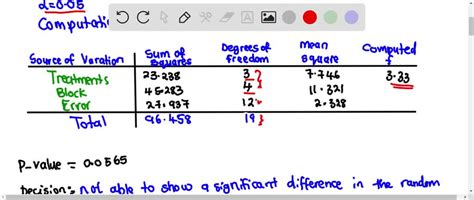 α=0.05
Computati
Source of Variation Sum of Squares Degrees of freedom Mean Square Computed f
Treatments 23.238 3 7.746 3.33
Block 45.283 4 11.321
Error 27.937 12 2.328
Total 96.458 19
P-value = 0.0565
Decision: not able to show a significant difference in the random